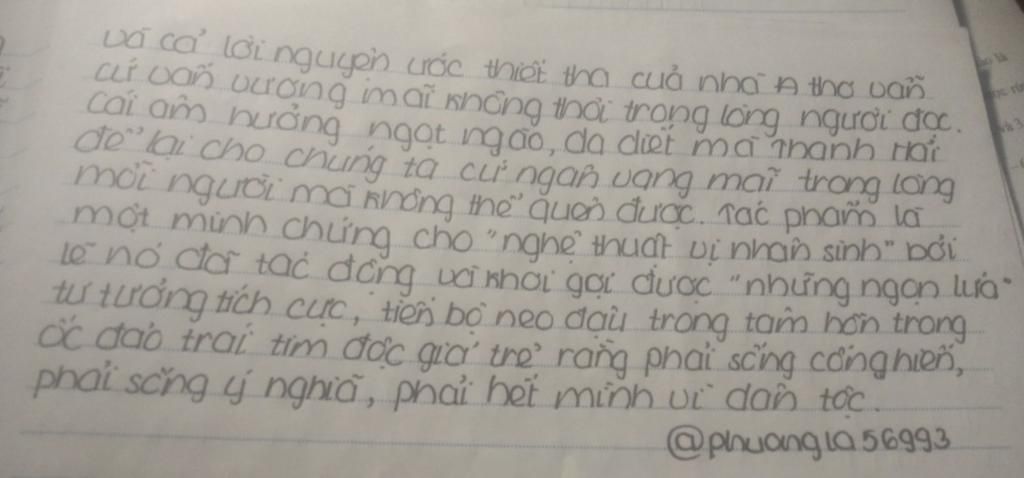 và cả lời nguyện ước thiết tha của nhà thơ vẫn
cứ vấn vương mãi không thôi trong lòng người đọc.
Cái âm hưởng ngọt ngào, da diết mà Thanh Hải
để lại cho chúng ta cứ ngân vang mãi trong lòng
mỗi người mà không thể quên được. Tác phẩm là
một minh chứng cho "nghệ thuật vị nhân sinh" bởi
lẽ nó đã tác động và khơi gợi được "những ngọn lửa"
tư tưởng tích cực, tiến bộ neo đậu trong tâm hồn trong
óc đảo trái tim độc giả trẻ rằng phải sống cống hiến,
phải sống ý nghĩa, phải hết mình vì dân tộc.
@phuongla56993